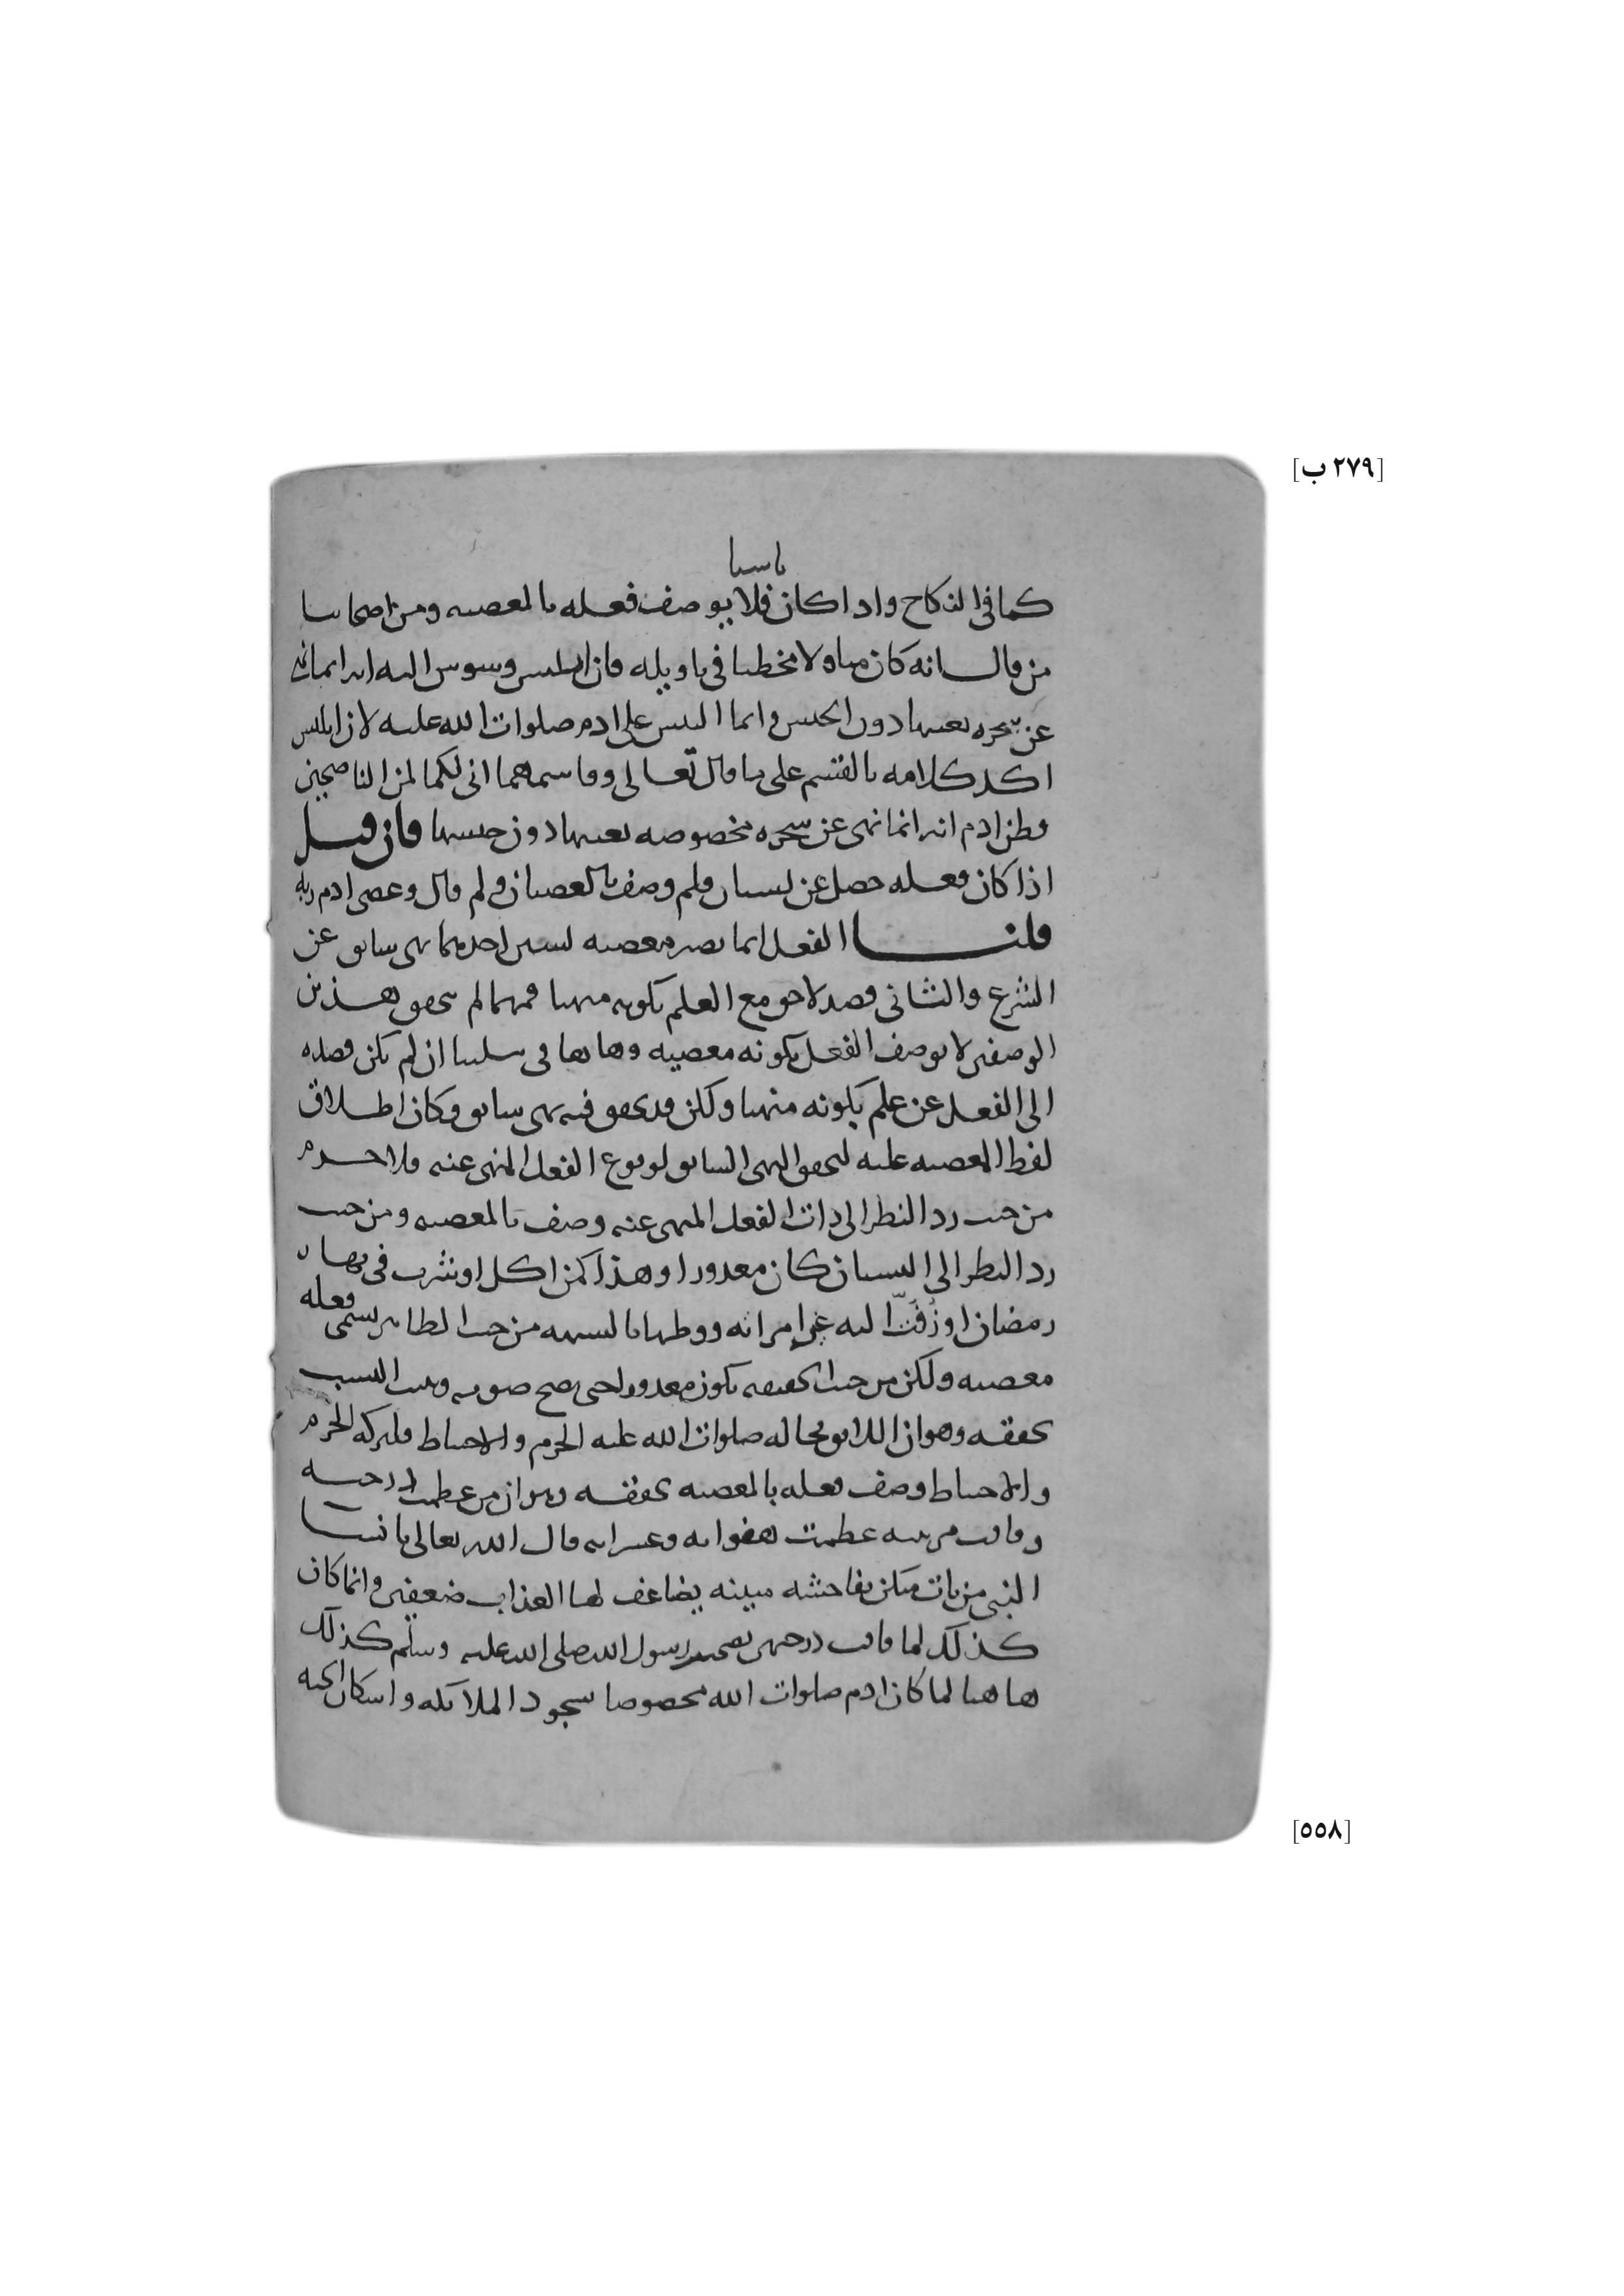 [٢٧٩ ب]
ناسيا
كما في النكاح واذا كان فلا يوصف فعله بالمعصيه ومن اصحابنا
من قال انه كان متاولا مخطيا في تاويله فان ابليس وسوس اليه انه انما نهي
عن شجره بعينها دون الجنس وانما التبس على ادم صلوات الله عليه لان ابليس
اكد كلامه بالقسم على ما قال تعالى وقاسمهما اني لكما لمن الناصحين
وظن ادم انه انما نهي عن شجره مخصوصه بعينها دون جنسها فان قيل
اذا كان فعله حصل عن نسيان فلم وصف بالعصيان ولم قال وعصى ادم ربه
قلنا الفعل انما يصير معصيه لسببين احدهما نهي سابق عن
الشرع والثاني قصد لاحق مع العلم بكونه منهيا فمهما لم يتحقق هذين
الوصفين لا يوصف الفعل بكونه معصيه وهاهنا في مسلتنا ان لم يكن قصده
الى الفعل عن علم بكونه منهيا ولكن قد تحقق فيه نهي سابق وكان اطلاق
لفظ المعصيه عليه لتحقق النهي السابق لوقوع الفعل المنهي عنه فلا جرم
من حيث رد النظر الى ذات الفعل المنهي عنه وصف بالمعصيه ومن حيث
رد النظر الى النسيان كان معذورا وهذا كمن اكل او شرب في نهار
رمضان او زُفّت اليه غير امراته ووطيها بالشبهه من حيث الظاهر يسمى فعله
معصيه ولكن من حيث الحقيقه يكون معذورا حتى يصح صومه ويثبت النسب
تحققه وهو ان اللايق بحاله صلوات الله عليه الحزم والاحتياط فلتركه الحزم
والاحتياط وصف فعله بالمعصيه تحققه وهو ان من عظمت درجته
وفاقت مرتبته عظمت هفواته وعثراته قال الله تعالى يا نسا
النبي من يات منكن بفاحشه مبينه يضاعف لها العذاب ضعفين وانما كان
كذلك لما فاقت درجتهن بصحبه رسول الله صلى الله عليه وسلم كذلك
هاهنا لما كان ادم صلوات الله مخصوصا بسجود الملائكه واسكان الجنه
[٥٥٨]